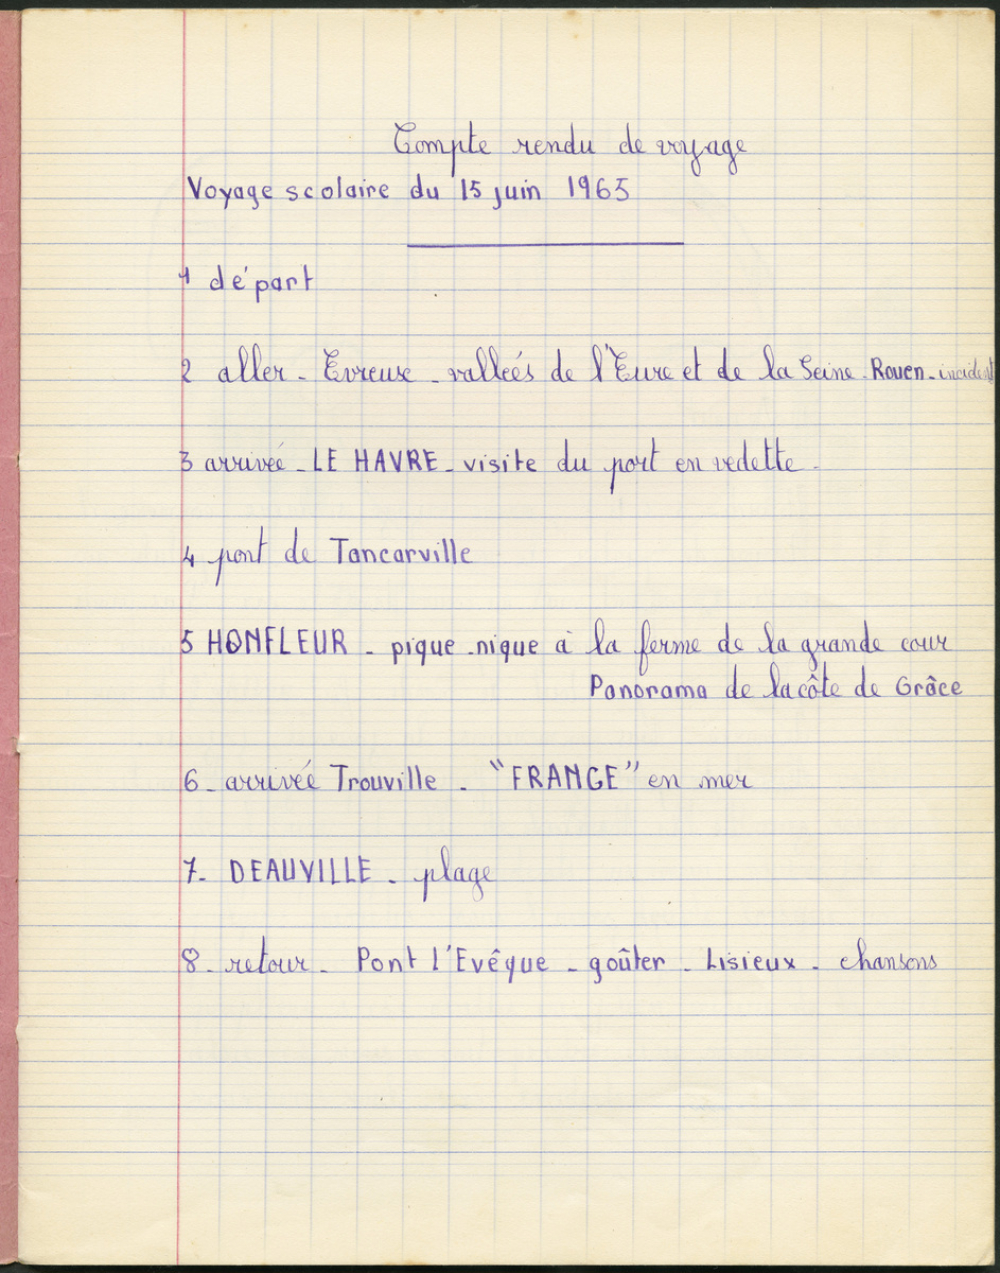 Compte rendu de voyage
Voyage scolaire du 15 juin 1965
1 départ
2 aller - Evreux - vallées de l'Eure et de la Seine - Rouen - incident
3 arrivée - LE HAVRE - visite du port en vedette -
4 pont de Tancarville
5 HONFLEUR - pique-nique à la ferme de la grande cour
Panorama de la côte de Grâce
6 - arrivée Trouville - "FRANCE" en mer
7 - DEAUVILLE - plage
8 - retour - Pont l'Evêque - goûter - Lisieux - chansons